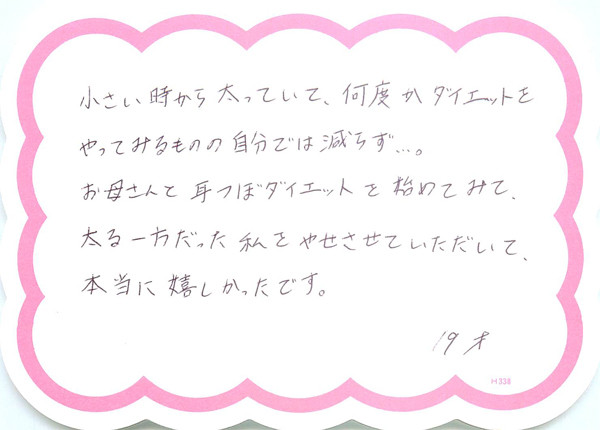 小さい時から太っていて、何度かダイエットを
やってみるものの自分では減らず…。
お母さんと耳つぼダイエットを始めてみて、
太る一方だった私をやせさせていただいて、
本当に嬉しかったです。
19才
H338